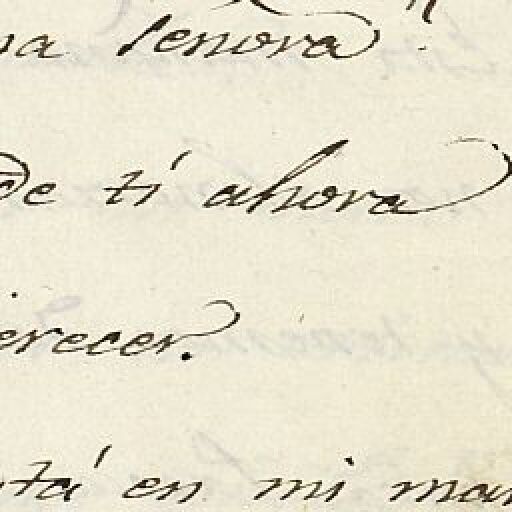 na senora.
de tí ahora
erecer.
tá en mi man